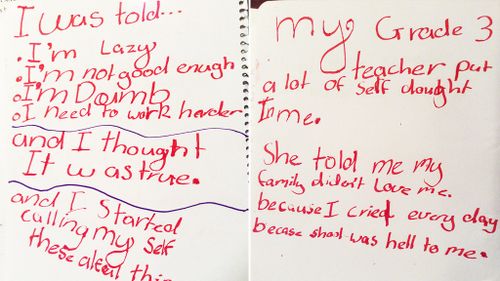 I was told...
.I'm Lazy
.I'm not good enough
.I'm Doumb
.I need to work harder
and I thought
It was true.
and I Started
calling my Self
these
my Grade 3
teacher put
a lot of Self dought
In me.
She told me my
family diden't Love me.
because I cried every day
becase shool was hell to me.